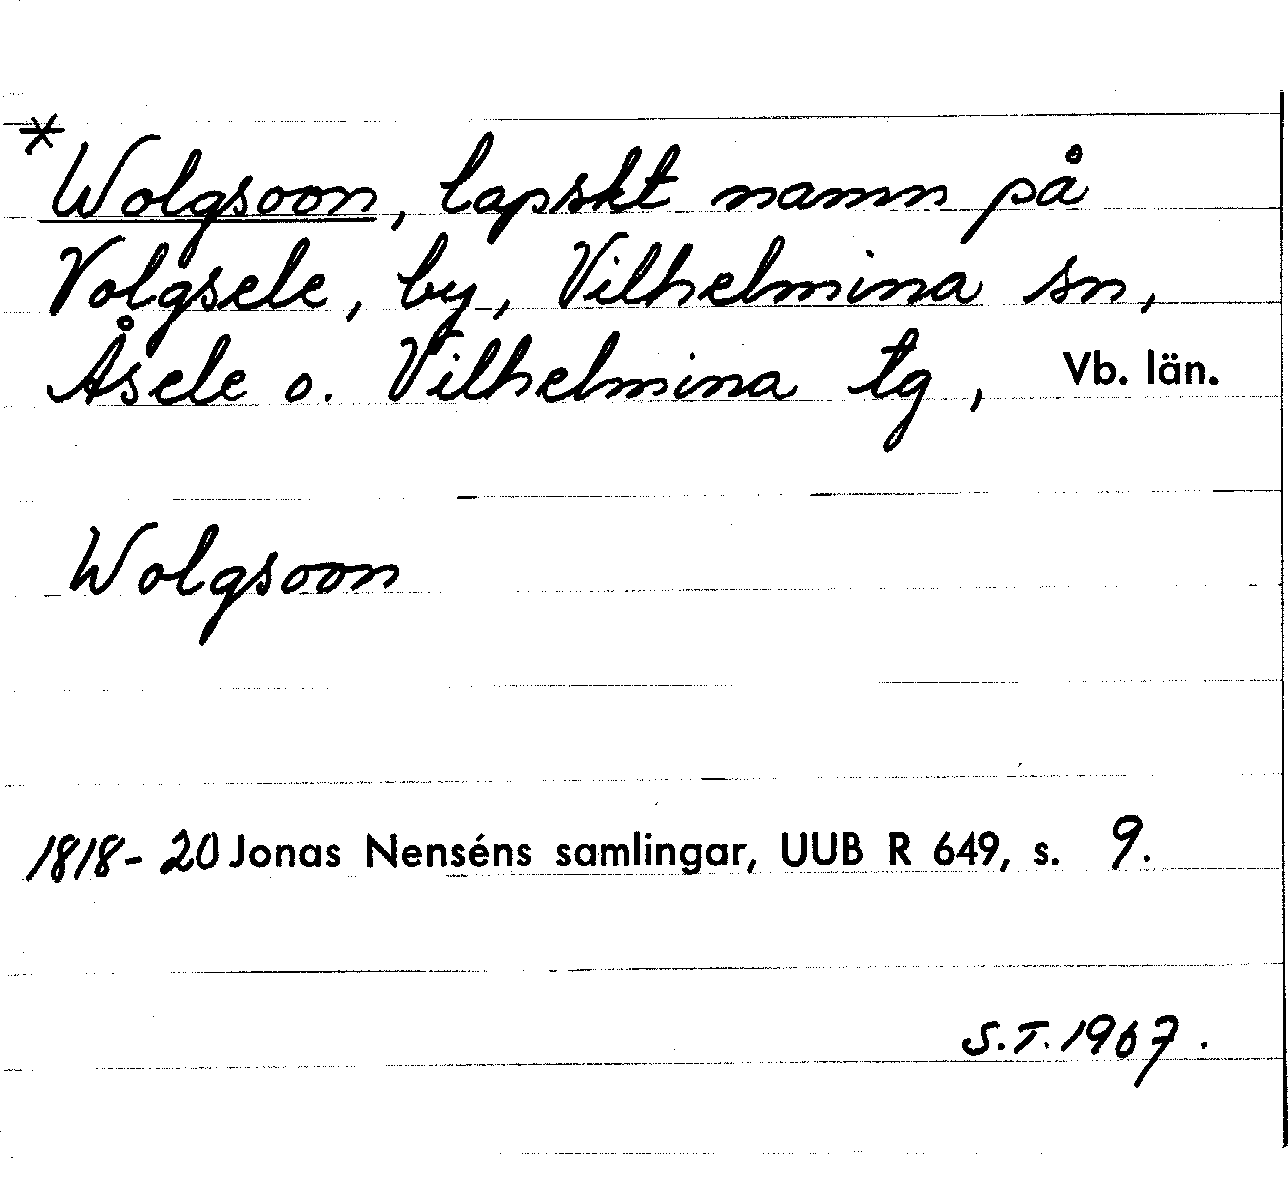 *Wolgsoon, lapskt namn på
Volgsele, by, Vilhelmina sn,
Åsele o. Vilhelmina tg, Vb. län.
Wolgsoon
1818-20 Jonas Nenséns samlingar, UUB R 649, s. 9.
S.T. 1967.